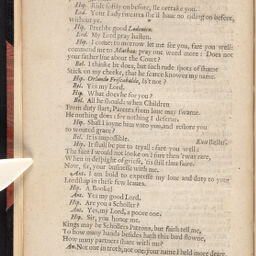 Hip. Ride softly on before, Ile oretake you.
Lod. Your Lady sweares she'll haue no riding on before,
without ye.
Hip. Prethee good Lodouico.
Lod. My Lord pray hasten.
Hip. I come: to morrow let me see you, fare you well:
commend me to Matheo; pray one word more: Does not
your father liue about the Court?
Bel. I thinke he does, but such rude spots of shame
Stick on my cheeke, that he scarce knowes my name.
Hip. Orlando Friscabaldo, Is't not?
Bel. Yes my Lord.
Hip. What does he for you?
Bel. All he should: when Children
From duty start, Parents from loue may swarue.
He nothing does: for nothing I deserue.
Hip. Shall I ioyne him vnto you, and restore you
to wonted grace?
Bel. It is impossible. Exit Bellaf.
Hip. It shall be put to tryall: fare you well:
The face I would not looke on! sure then 'twas rare,
When in despight of griefe, 'tis still thus faire.
Now, sir, your businesse with me.
Ant. I am bold to expresse my loue and duty to your
Lordship in these few leaues.
Hip. A Booke!
Ant. Yes my good Lord.
Hip. Are you a Scholler?
Ant. Yes, my Lord, a poore one.
Hip. Sir, you honor me.
Kings may be Schollers Patrons, but faith tell me,
To how many hands besides hath this bird flowne,
How many partners share with me?
An. Not one in troth, not one: your name I held more deare,